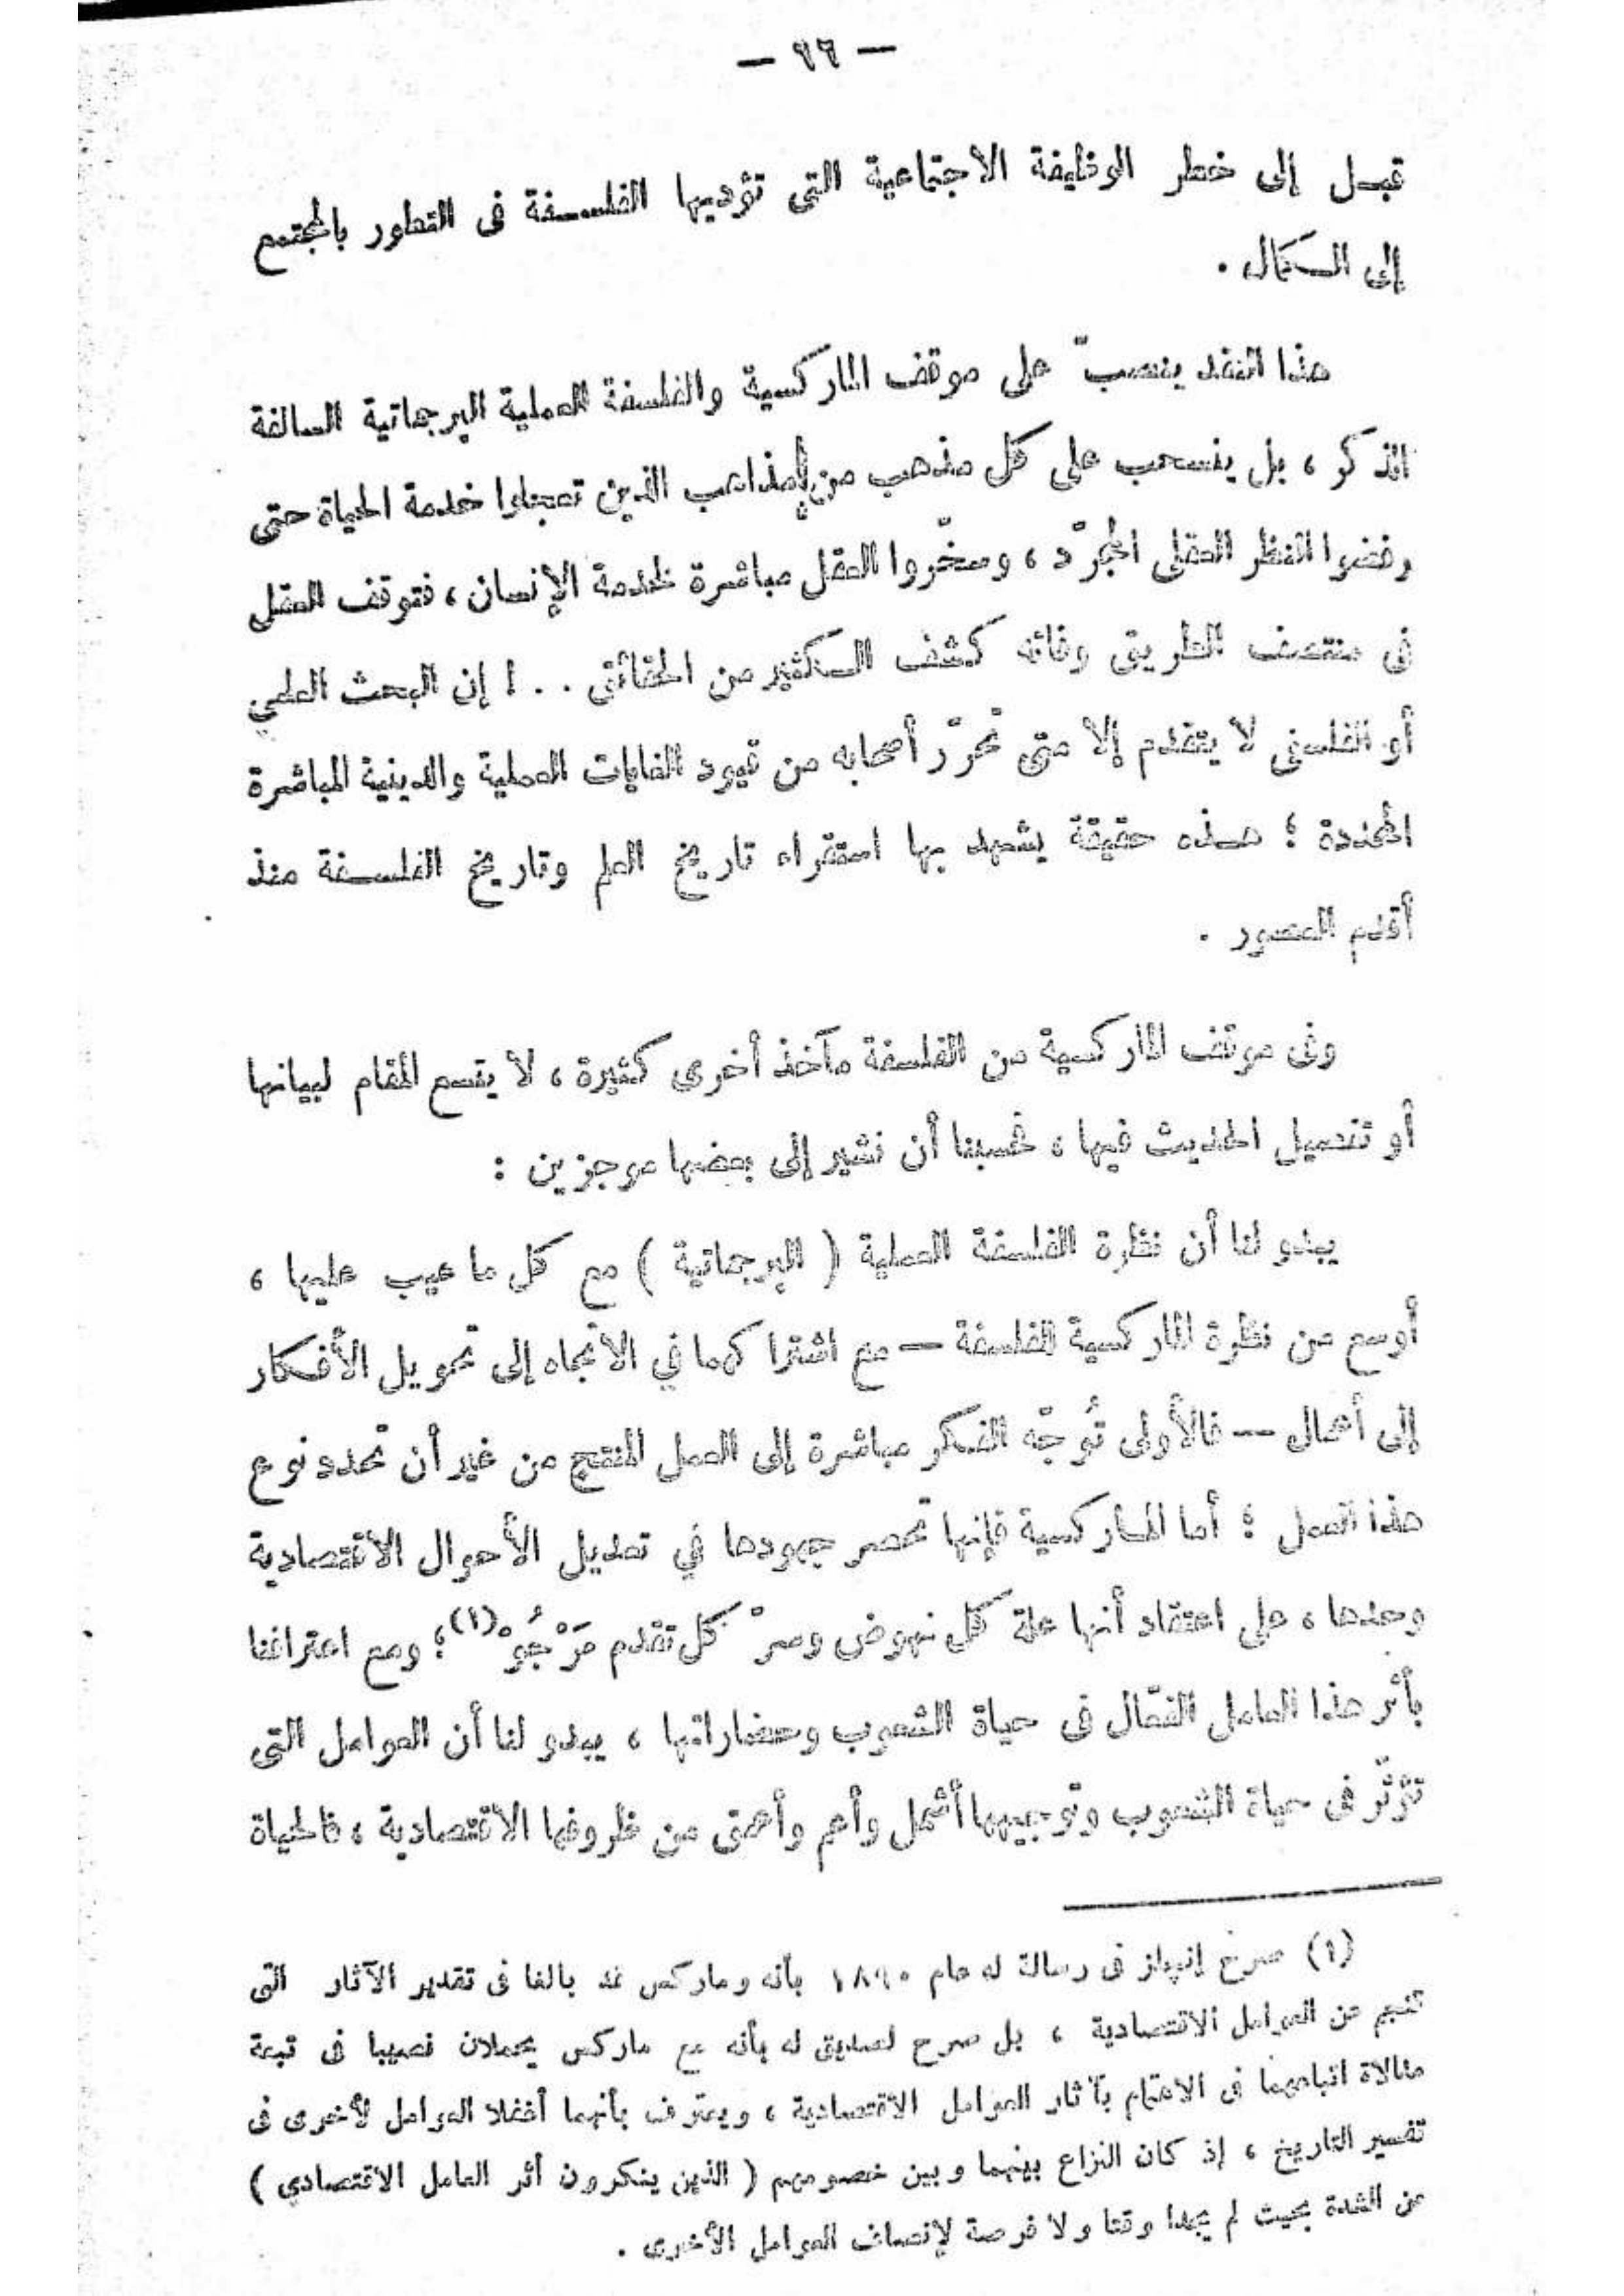 — ٩٦ —
قبل إلى خطر الوظيفة الاجتماعية التى تؤديها الفلسفة فى التطور بالمجتمع
إلى الكمال .
هذا النقد ينصبّ على موقف الماركسية والفلسفة العملية البرجماتية السالفة
الذكر ، بل ينسحب على كل مذهب من المذاهب الذين تعجلوا خدمة الحياة حتى
رفضوا النظر العقلى المجرّد ، وسخّروا العقل مباشرة لخدمة الإنسان ، فتوقف العقل
فى منتصف الطريق وفاته كشف الكثير من الحقائق . . ! إن البحث العلمي
أو الفلسفى لا يتقدم إلا متى تحرّر أصحابه من قيود الغايات العملية والدينية المباشرة
المحددة ؛ هذه حقيقة يشهد بها استقراء تاريخ العلم وتاريخ الفلسفة منذ
أقدم العصور .
وفى موقف الماركسية من الفلسفة مآخذ أخرى كثيرة ، لا يتسع المقام لبيانها
أو تفصيل الحديث فيها ، فحسبنا أن نشير إلى بعضها موجزين :
يبدو لنا أن نظرة الفلسفة العملية ( البرجماتية ) مع كل ما عيب عليها ،
أوسع من نظرة الماركسية للفلسفة — مع اشتراكهما في الاتجاه إلى تحويل الأفكار
إلى أعمال — فالأولى تُوجّه الفكر مباشرة إلى العمل المنتج من غير أن تحدد نوع
هذا العمل ؛ أما الماركسية فإنها تحصر جهودها في تعديل الأحوال الاقتصادية
وحدها ، على اعتقاد أنها علة كل نهوض وسرّ كل تقدم مَرْجُوّ (١) ؛ ومع اعترافنا
بأثر هذا العامل الفعّال فى حياة الشعوب وحضاراتها ، يبدو لنا أن العوامل التى
تؤثّر فى حياة الشعوب وتوجيهها أشمل وأهم وأعمق من ظروفها الاقتصادية ، فالحياة
(١) صرح إنجلز فى رسالة له عام ١٨٩٠ بأنه وماركس قد بالغا فى تقدير الآثار التى
تنجم عن العوامل الاقتصادية ، بل صرح لصديق له بأنه مع ماركس يحملان نصيبا فى تبعة
مغالاة اتباعهما فى الاهتمام بآثار العوامل الاقتصادية ، ويعترف بأنهما أغفلا العوامل الأخرى فى
تفسير التاريخ ، إذ كان النزاع بينهما وبين خصومهم ( الذين ينكرون أثر العامل الاقتصادي )
من الشدة بحيث لم يجدا وقتا ولا فرصة لإنصاف العوامل الأخرى .